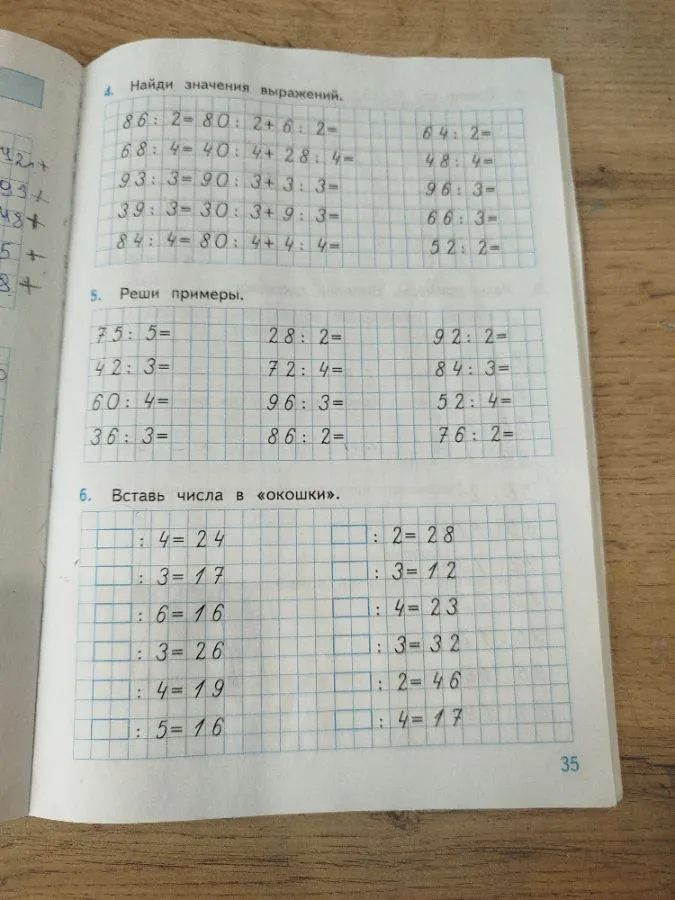 42л+
93+
48+
5 +
8 +
4. Найди значения выражений.
86: 2= 80: 2+6: 2= 64: 2=
68: 4= 40: 4+28: 4= 48: 4=
93: 3= 90: 3+3: 3= 96: 3=
39: 3= 30: 3+9: 3= 66: 3=
84: 4= 80: 4+4: 4= 52: 2=
5. Реши примеры.
75: 5= 28: 2= 92: 2=
42: 3= 72: 4= 84: 3=
60: 4= 96: 3= 52: 4=
36: 3= 86: 2= 76: 2=
6. Вставь числа в «окошки».
: 4= 24 : 2= 28
: 3= 17 : 3= 12
: 6= 16 : 4= 23
: 3= 26 : 3= 32
: 4= 19 : 2= 46
: 5= 16 : 4= 17
35